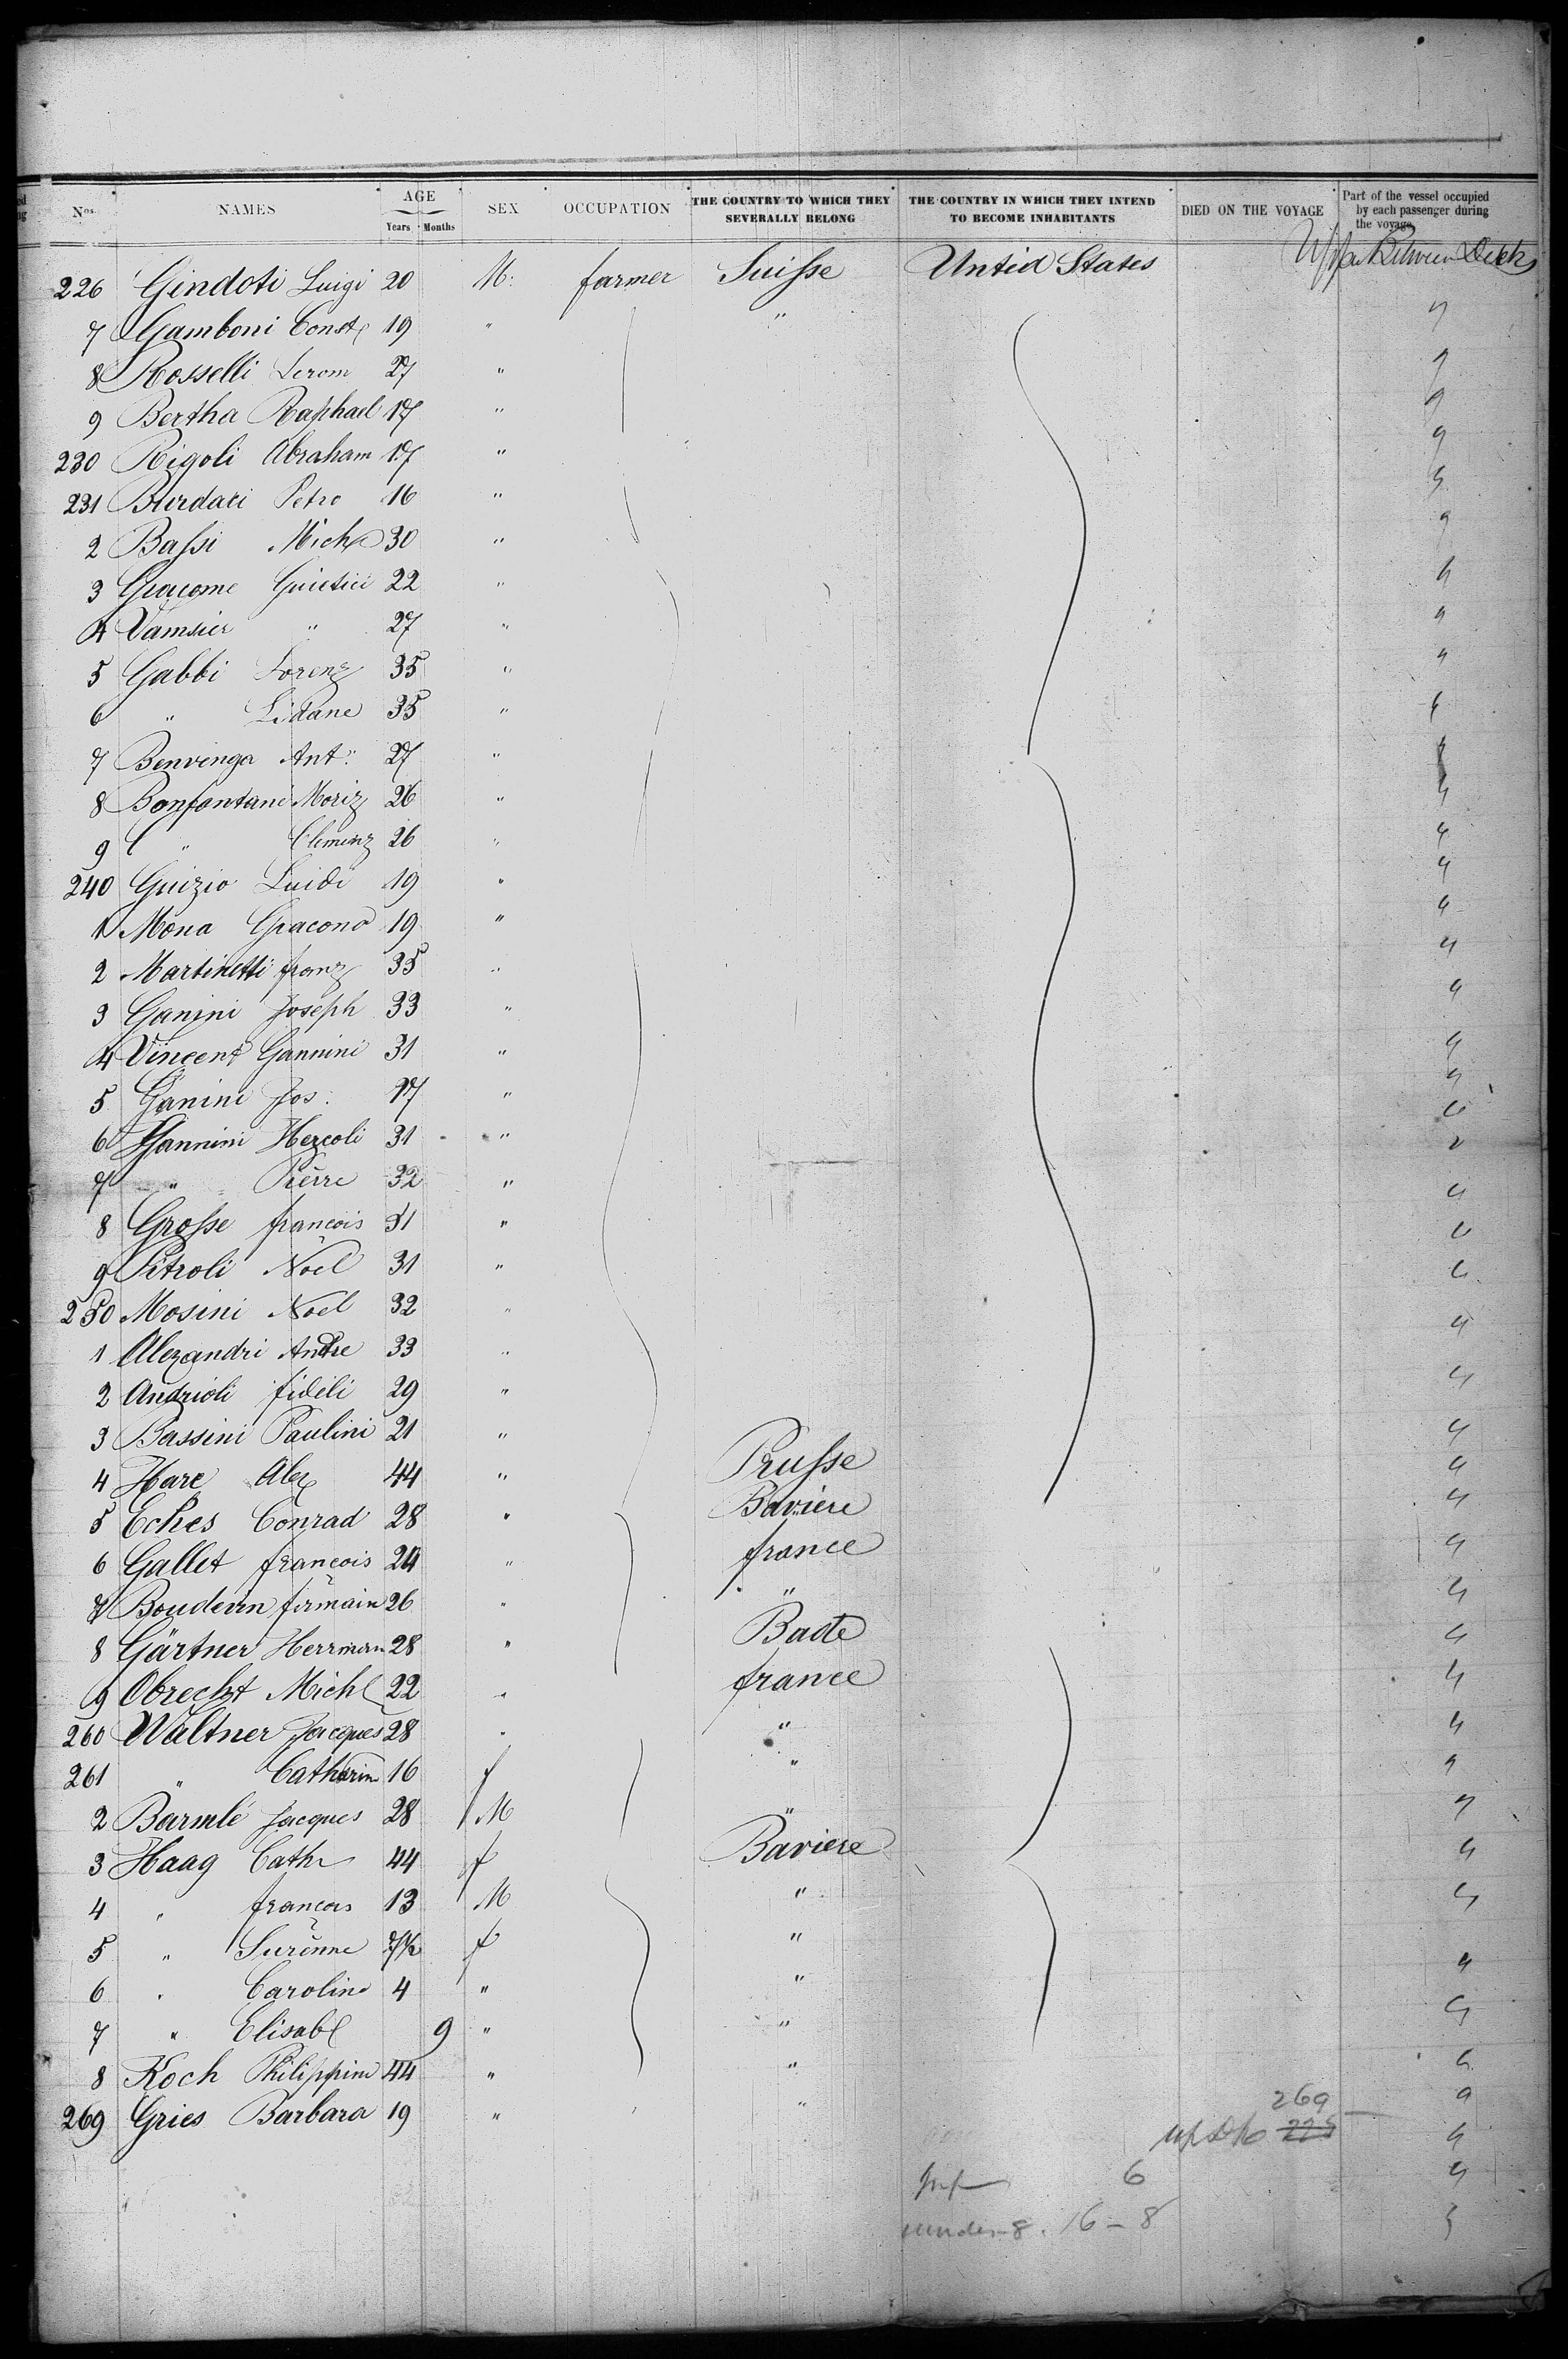 Nos. NAMES AGE Years Months SEX OCCUPATION THE COUNTRY TO WHICH THEY SEVERALLY BELONG THE COUNTRY IN WHICH THEY INTEND TO BECOME INHABITANTS DIED ON THE VOYAGE Part of the vessel occupied by each passenger during the voyage
226 Gindoti Luigi 20 M: farmer Suisse Untied States Upper Between Decks
7 Gamboni Const 19 " "
8 Rosselli Serom 27 "
9 Bertha Raphael 17 "
230 Rigoli Abraham 17 "
231 Burdati Petro 16 "
2 Bassi Mich 30 "
3 Giacome 22 "
4 Vamsier " 27 "
5 Gabbi Lorenz 35 "
6 " Lidane 35 "
7 Benvenga Ant: 27 "
8 Bonfantani Moriz 26 "
9 " Clemenz 26 "
240 Guizio Luidi 19 "
1 Mona Giacono 19 "
2 Martinetti franz 35 "
3 Ganini Joseph 33 "
4 Vincent Gannini 31 "
5 Ganini Jos: 17 "
6 Gannini Hercoli 31 "
7 " Pierre 32 "
8 Grosse françois 31 "
9 Pitroli Noël 31 "
250 Mosini Noël 32 "
1 Alexandri Andre 33 "
2 Andrioli fideli 29 "
3 Bassini Paulini 21 "
4 Hare Alex 44 " Prusse
5 Eches Conrad 28 " Baviere
6 Gallet françois 24 " france
7 Bouderin firmain 26 " "
8 Gärtner Herrman 28 " Bade
9 Obrecht Michl 22 " france
260 Waltner Jacques 28 " "
261 " Catharine 16 f "
2 Barmlé Jacques 28 M "
3 Haag Cath 44 f Baviere
4 " françois 13 M "
5 " Surenne 7½ f "
6 " Caroline 4 " "
7 " Elisabl 9 " "
8 Koch Philippine 44 " "
269 Gries Barbara 19 " "
269
225
6
under 8. 16 - 8